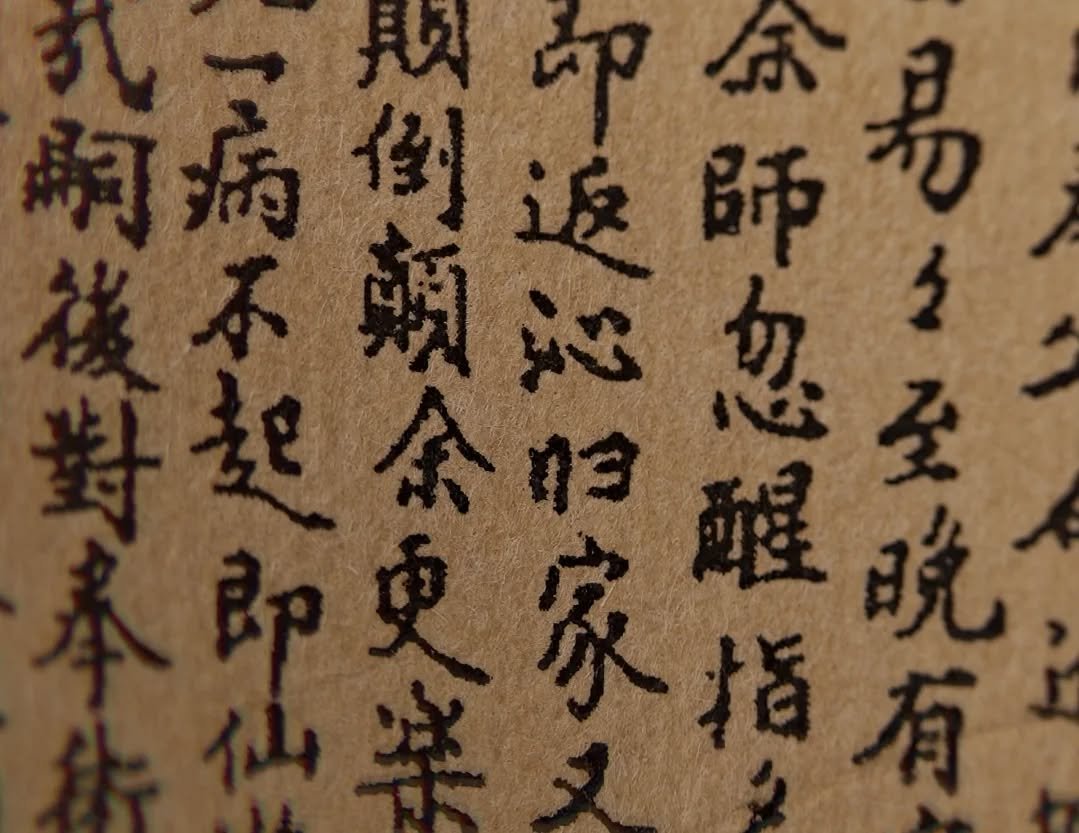 易〻至晚有
余師忽醒指
即返沁归家又
顛倒顛余更
一病不起即仙
嗣後對奉術